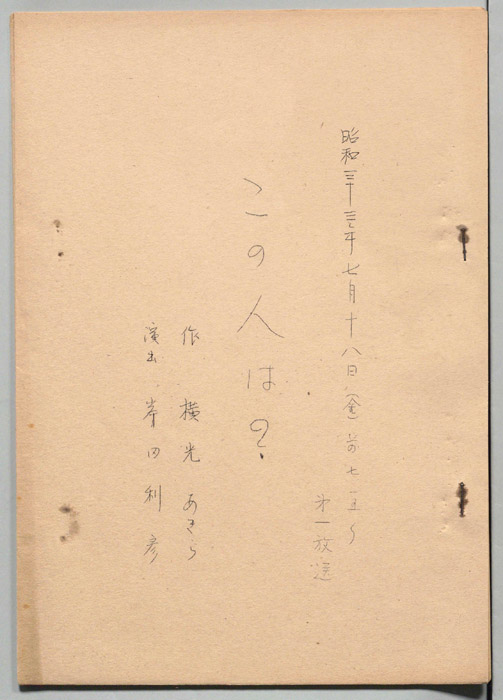 昭和三十三年七月十八日(金)前七
第一放送
この人は?
作 横光あきら
演出 岸田利彦